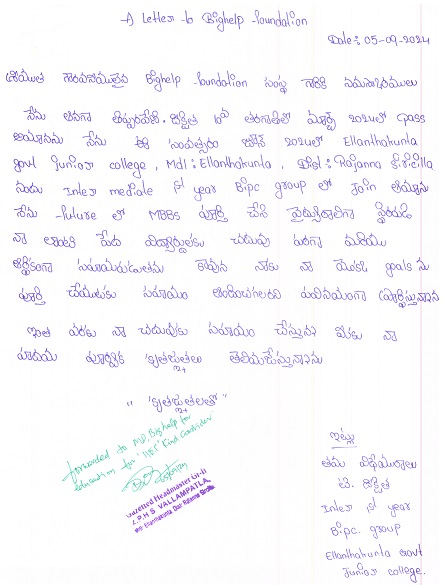 A Letter to Bighelp foundation
Date: 05-09-2024
శ్రీయుత గౌరవనీయులైన Bighelp foundation సంస్థ గారికి నమస్కారములు
నేను అనగా దీక్షిత 10వ తరగతిలో మార్చ్ 2024లో pass
అయినాను నేను ఈ సంవత్సరం జూన్ 2024లో Ellanthakunta
govt junior college, Mdl: Ellanthakunta, Dist: Rajanna siricilla
నందు Inter mediate 1st year Bipc group లో Join అయ్యాను
నేను future లో MBBS పూర్తి చేసి వైద్యురాలిగా స్థిరపడి
నా లాంటి పేద విద్యార్థులకు చదువు పరంగా మరియు
ఆర్థికంగా సహాయపడుతను కావున నాకు నా యొక్క goals ను
పూర్తి చేయుటకు సహాయం అందించగలరని వినయంగా ప్రార్థిస్తున్నాను
ఇంత వరకు నా చదువుకు సహాయం చేస్తున్న మీకు నా
హృదయ పూర్వక కృతజ్ఞతలు తెలియజేస్తున్నాను
" కృతజ్ఞతలతో "
forwarded to MD, Bighelp for
education for
Gazetted Headmaster Gr-II
Z.P.H.S VALLAMPATLA,
Mdl: Ellanthakunta Dist: Rajanna Sircilla
ఇట్లు
తమ విధేయురాలు
దీక్షిత
Inter 1st year
Bipc. group
Ellanthakunta Govt
Junior college.